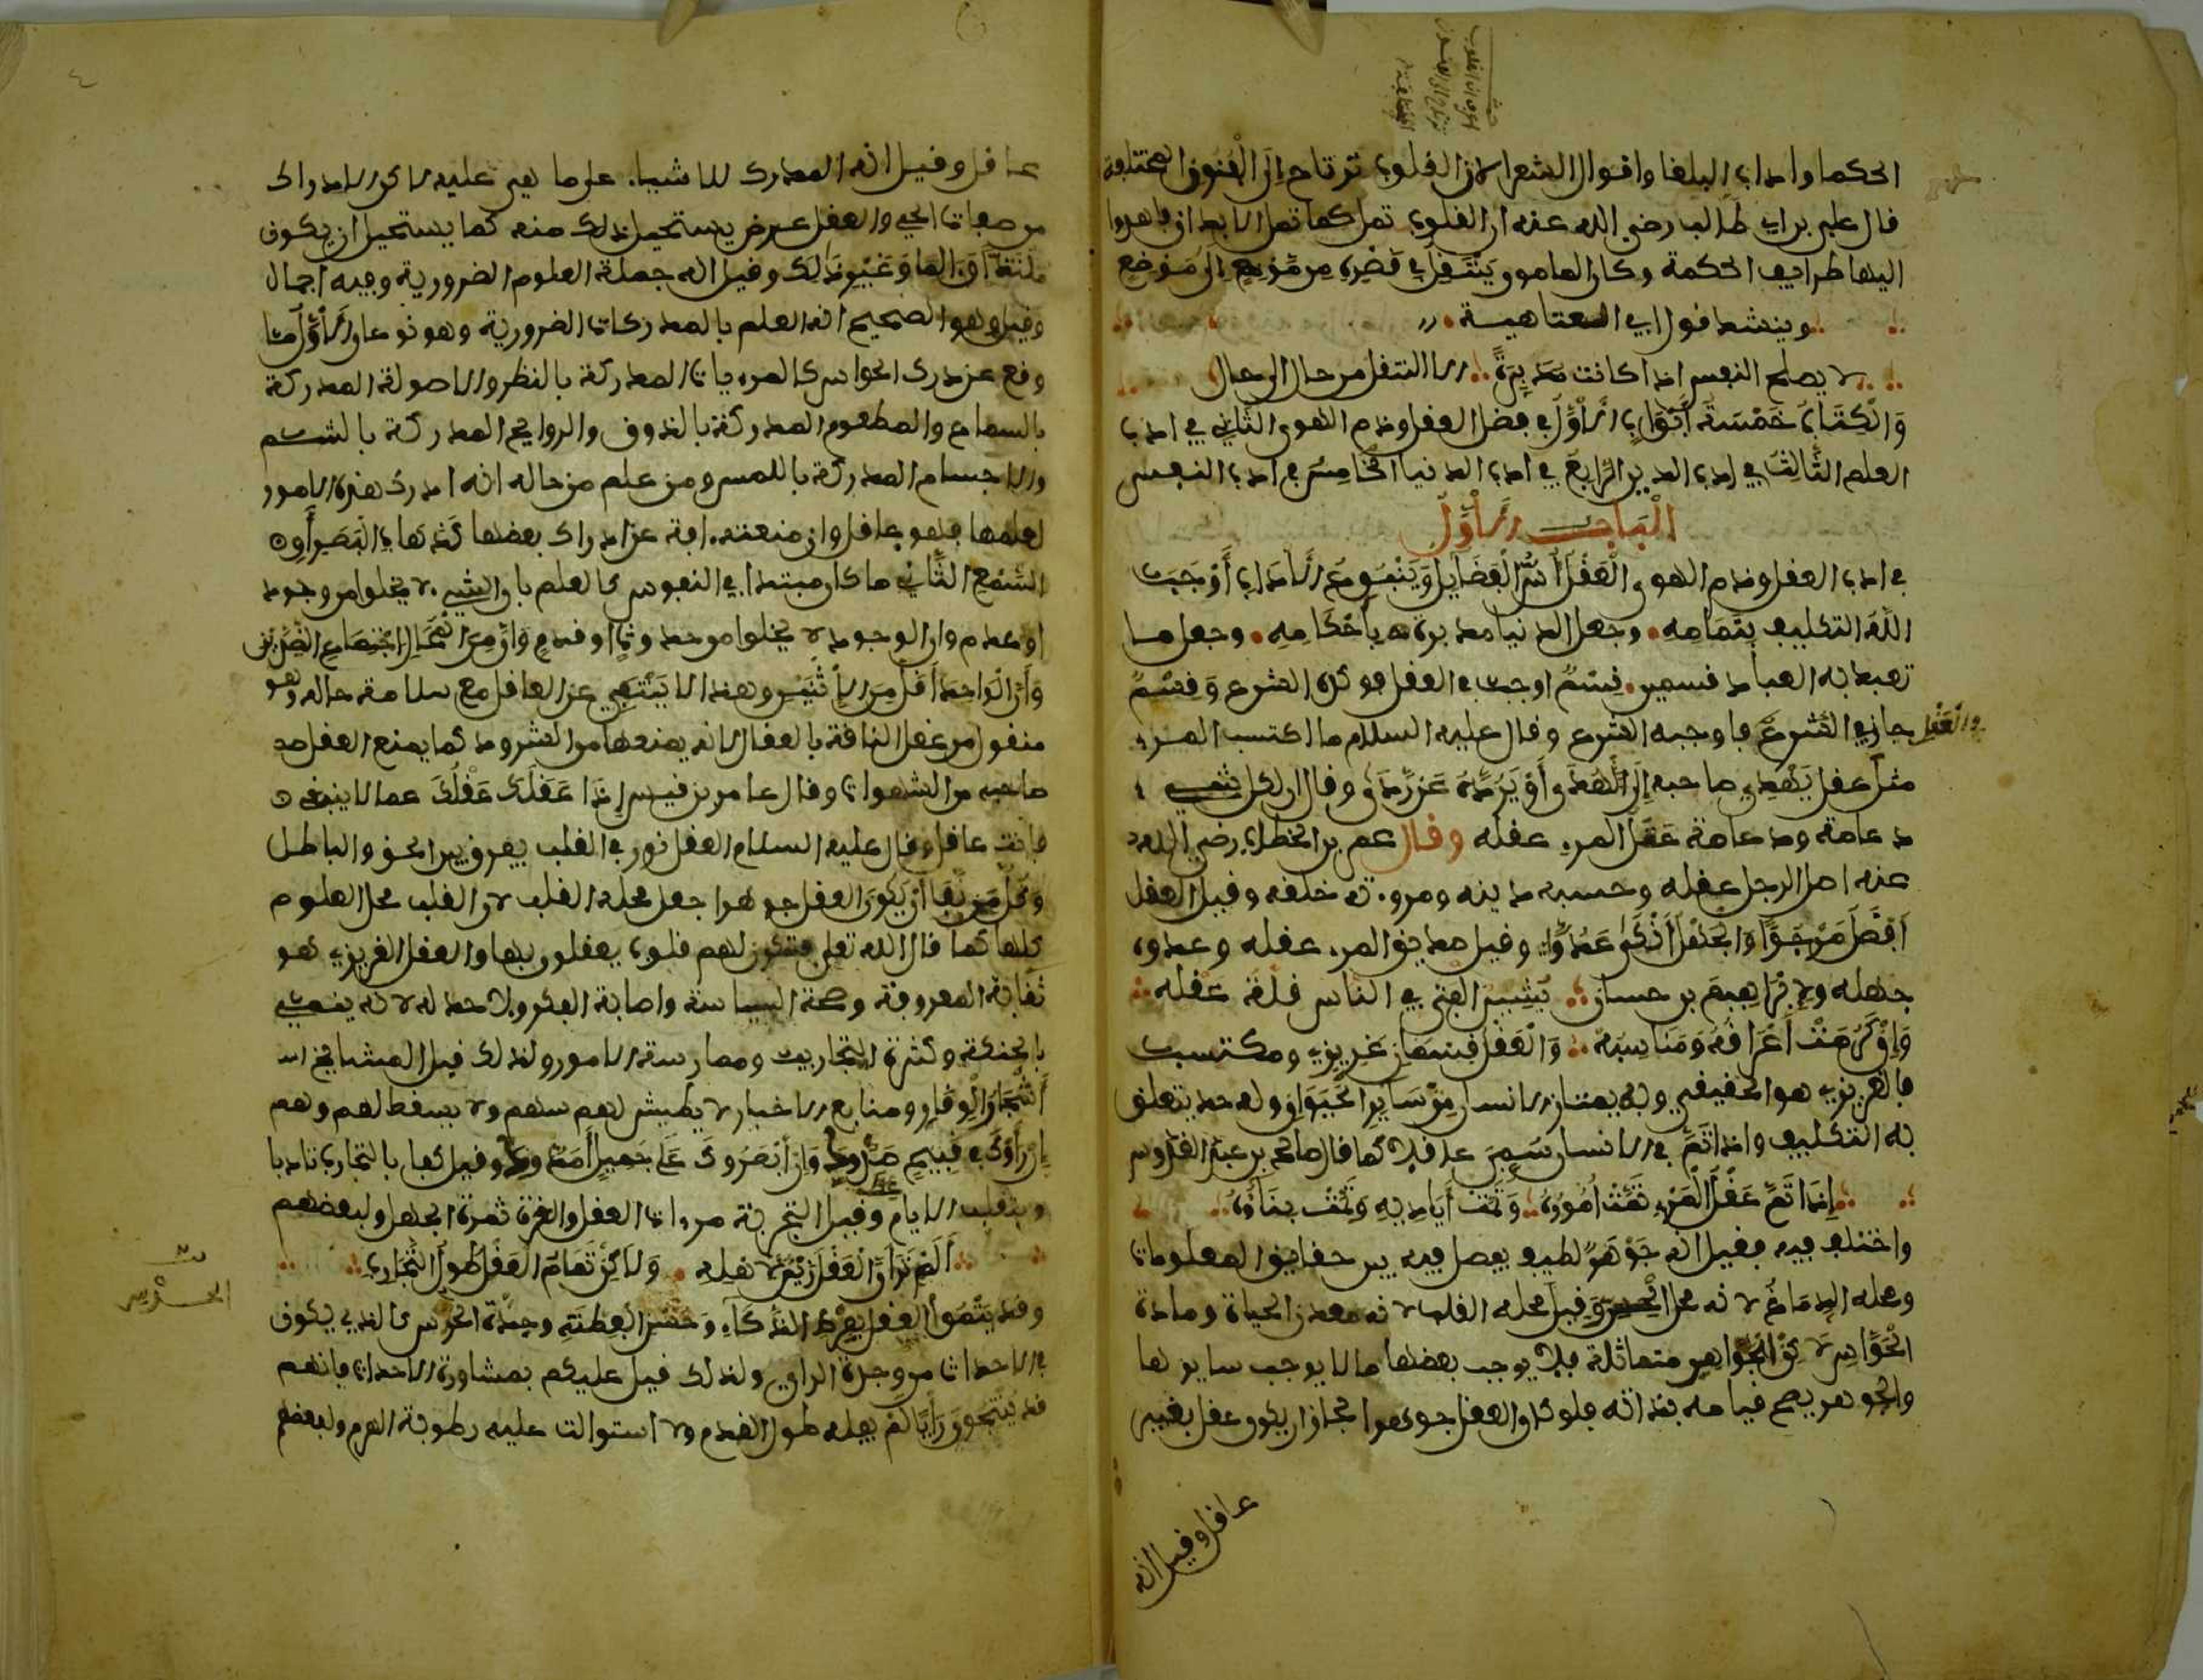 الحكما واداب البلغا واقوال الشعرا لان القلوب ترتاح إلى الفنون المختلفة
قال علي بن ابي طالب رضي الله عنه ان القلوب تمل كما تمل الابدان فاهدوا
اليها طرايف الحكمة وكان المامون يتنقل في قصره من موضع إلى موضع
وينشد قول ابي العتاهية
لا يصلح النفس اذا كانت مدبرة الا التنقل من حال الى حال
والكتاب خمسة أبواب الأول في فضل العقل وذم الهوى الثاني في ادب
العلم الثالث في ادب الدين الرابع في ادب الدنيا الخامس في ادب النفس
الباب الأول
في ادب العقل وذم الهوى العقل أس الفضايل وينبوع الأداب أوجب
الله التكليف بتمامه وجعل الدنيا مدبرة بأحكامه وجعل ما
تعبد به العباد قسمين قسم اوجب بالعقل فوكده الشرع وقسم
جاز في العقل فاوجبه الشرع وقال عليه السلام ما اكتسب المرء
مثل عقل يهدي صاحبه إلى الهدى أو يرده عن ردى وقال ان لكل شيء
دعامة ودعامة عقل المرء عقله وقال عمر بن الخطاب رضي الله
عنه اصل الرجل عقله وحسبه دينه ومروءته خلقه وقيل العقل
أفضل مرجو والجهل أنكى عدو وقيل صديق المرء عقله وعدوه
جهله ولإبراهيم بن حسان يشين الفتى في الناس قلة عقله
وإن كرمت أعراقه ومناسبه والعقل قسمان غريزي ومكتسب
فالغريزي هو الحقيقي وبه يمتاز الانسان من ساير الحيوان وله حد يتعلق
به التكليف واذا تم في الانسان سمي عاقلا كما قال صالح بن عبد القدوس
إذا تم عقل المرء تمت أموره وتمت أياديه وتمت بناؤه
واختلف فيه فقيل انه جوهر لطيف يفصل فيه بين حقايق المعلومات
ومحله الدماغ لانه محل الحس وقيل محله القلب لانه معدن الحياة ومادة
الحواس لا الجواهر متماثلة فلا يوجب بعضها ما لا يوجب سايرها
والجوهر يصح قيامه بذاته فلو كان العقل جوهرا لجاز ان يكون عقل بغير
عاقل وقيل انه
عاقل وقيل انه المدرك للاشياء على ما هي عليه لاكن الادراك
من صفات الحي والعقل عرض يستحيل ذلك منه كما يستحيل ان يكون
ملتذا او الما وغير ذلك وقيل انه جملة العلوم الضرورية وفيه اجمال
وقيل وهو الصحيح انه العلم بالمدركات الضرورية وهو نوعان الأول ما
وقع عن درك الحواس كالمرءيات المدركة بالنظر والاصوات المدركة
بالسماع والمطعوم المدركة بالذوق والروايح المدركة بالشم
والاجسام المدركة باللمس ومن علم من حاله انه ادرك هذه الامور
لعلمها فهو عاقل وان منعته افة عن ادراك بعضها كذهاب البصر أو
السمع الثاني ما كان مبتدا في النفوس كالعلم بان الشيء لا يخلوا من وجود
او عدم وان الموجود لا يخلوا من حدوث او قدم وان من المحال اجتماع الضدين
وأن الواحد أقل من الاثنين وهذا لا ينتفي عن العاقل مع سلامة حاله وهو
منقول من عقل الناقة بالعقال لانه يمنعها من الشرود كما يمنع العقل
صاحبه من الشهوات وقال عامر بن قيس إذا عقلك عقلك عما لا ينبغي
فانت عاقل وقال عليه السلام العقل نور في القلب يفرق بين الحق والباطل
وكل من نفا أن يكون العقل جوهرا جعل محله القلب لان القلب محل العلوم
كلها كما قال الله تعلى فتكون لهم قلوب يعقلون بها والعقل الغريزي هو
ثقابة المعروفة وصحة السياسة واصابة الفكر ولا حد له لانه ينمي
بالحنكة وكثرة التجاريب وممارسة الامور ولذلك قيل المشايخ
أشجار الوقار ومنابع الاخبار لا يطيش لهم سهم ولا يسقط لهم وهم
إن رأوك في قبيح صدوك وإن أبصروك على جميل أمدوك وقيل كفا بالتجارب تاديبا
وبتقلب الايام عظة وقيل التجربة مرءات العقل والغرة ثمرة الجهل ولبعضهم
ألم تر أن العقل زين لاهله ولاكن تمام العقل طول التجارب
وقد ينموا العقل بفرط الذكاء وحسن الفطنة وجودة الحدس كالذي يكون
في الاحداث من وجدة الراي ولذلك قيل عليكم بمشاورة الاحداث فانهم
قد ينتجون رأيا لم يفله طول القدم ولا استوالت عليه رطوبة الهرم ولبعضهم